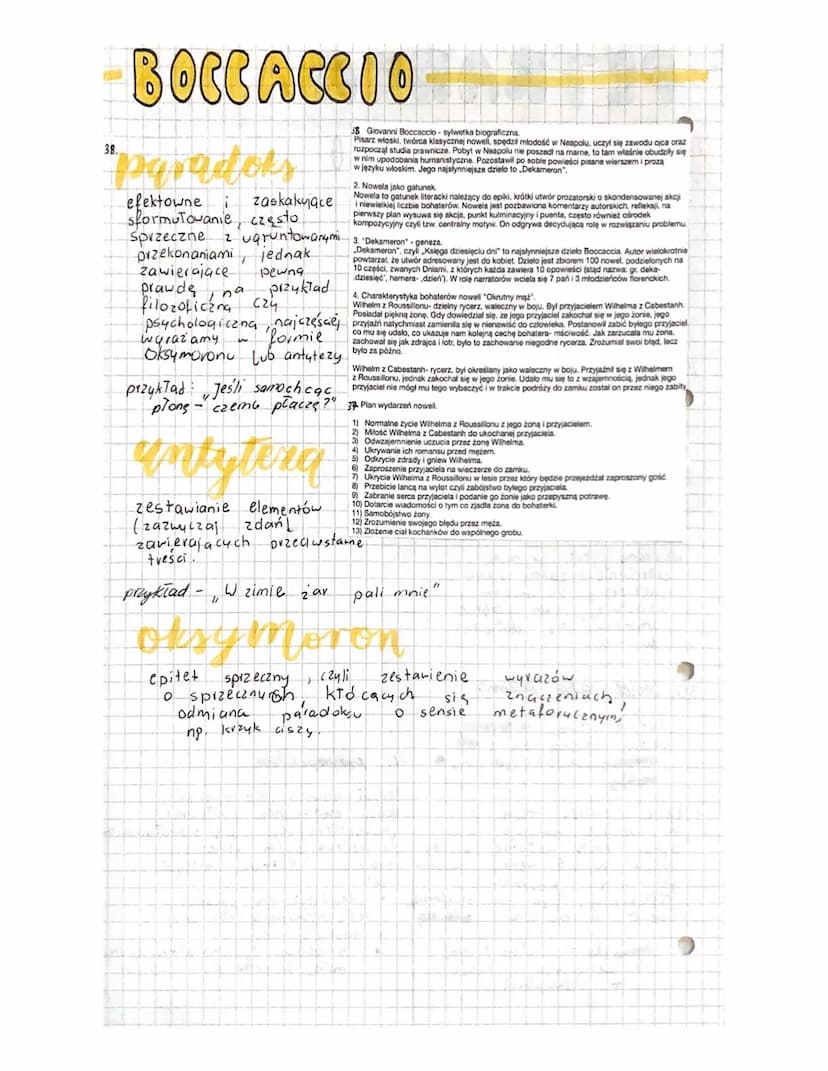 BOCCACCIO
38.
paradoks
efektowne i zaskakujące
sformułowanie, często
sprzeczne z ugruntowanymi
przekonaniami, jednak
zawierające pewną
prawdę, na przykład
filozoficzną czy
psychologiczną, najczęściej
wyrażamy w formie
oksymoronu lub antytezy
przykład: „Jeśli samochcąc
płonę - czemu płaczę?"
antyteza
zestawianie elementów
(zazwyczaj zdań)
zawierających przeciwstawne
treści.
przykład - „W zimie żar pali mnie"
oksymoron
epitet sprzeczny, czyli zestawienie wyrazów
o sprzecznych, kłócących się znaczeniach,
odmiana paradoksu o sensie metaforycznym,
np. krzyk ciszy.
38 Giovanni Boccaccio - sylwetka biograficzna.
Pisarz włoski, twórca klasycznej noweli, spędził młodość w Neapolu, uczył się zawodu ojca oraz
rozpoczął studia prawnicze. Pobyt w Neapolu nie poszedł na marne, to tam właśnie obudziły się
w nim upodobania humanistyczne. Pozostawił po sobie powieści pisane wierszem i prozą
w języku włoskim. Jego najsłynniejsze dzieło to „Dekameron".
2. Nowela jako gatunek.
Nowela to gatunek literacki należący do epiki, krótki utwór prozatorski o skondensowanej akcji
i niewielkiej liczbie bohaterów. Nowela jest pozbawiona komentarzy autorskich, refleksji, na
pierwszy plan wysuwa się akcja, punkt kulminacyjny i puenta, często również ośrodek
kompozycyjny czyli tzw. centralny motyw. On odgrywa decydującą rolę w rozwiązaniu problemu.
3. "Dekameron" - geneza.
„Dekameron", czyli „Księga dziesięciu dni" to najsłynniejsze dzieło Boccaccia. Autor wielokrotnie
powtarzał, że utwór adresowany jest do kobiet. Dzieło jest zbiorem 100 nowel, podzielonych na
10 części, zwanych Dniami, z których każda zawiera 10 opowieści (stąd nazwa: gr. deka-
,dziesięć', hemera- ,dzień'). W rolę narratorów wciela się 7 pań i 3 młodzieńców florenckich.
4. Charakterystyka bohaterów noweli "Okrutny mąż".
Wilhelm z Roussillonu- dzielny rycerz, waleczny w boju. Był przyjacielem Wilhelma z Cabestanh.
Posiadał piękną żonę. Gdy dowiedział się, że jego przyjaciel zakochał się w jego żonie, jego
przyjaźń natychmiast zamieniła się w nienawiść do człowieka. Postanowił zabić byłego przyjaciel
co mu się udało, co ukazuje nam kolejną cechę bohatera- mściwość. Jak zarzucała mu żona,
zachował się jak zdrajca i łotr, było to zachowanie niegodne rycerza. Zrozumiał swój błąd, lecz
było za późno.
Wilhelm z Cabestanh- rycerz, był określany jako waleczny w boju. Przyjaźnił się z Wilhelmem
z Roussillonu, jednak zakochał się w jego żonie. Udało mu się to z wzajemnością, jednak jego
przyjaciel nie mógł mu tego wybaczyć i w trakcie podróży do zamku został on przez niego zabity.
39. Plan wydarzeń noweli.
1) Normalne życie Wilhelma z Roussillonu z jego żoną i przyjacielem.
2) Miłość Wilhelma z Cabestanh do ukochanej przyjaciela.
3) Odwzajemnienie uczucia przez żonę Wilhelma.
4) Ukrywanie ich romansu przed mężem.
5) Odkrycie zdrady i gniew Wilhelma.
6) Zaproszenie przyjaciela na wieczerze do zamku.
7) Ukrycie Wilhelma z Roussillonu w lesie przez który będzie przejeżdżał zaproszony gość.
8) Przebicie lancą na wylot czyli zabójstwo byłego przyjaciela.
9) Zabranie serca przyjaciela i podanie go żonie jako przepyszną potrawę.
10) Dotarcie wiadomości o tym co zjadła żona do bohaterki.
11) Samobójstwo żony.
12) Zrozumienie swojego błędu przez męża.
13) Złożenie ciał kochanków do wspólnego grobu.